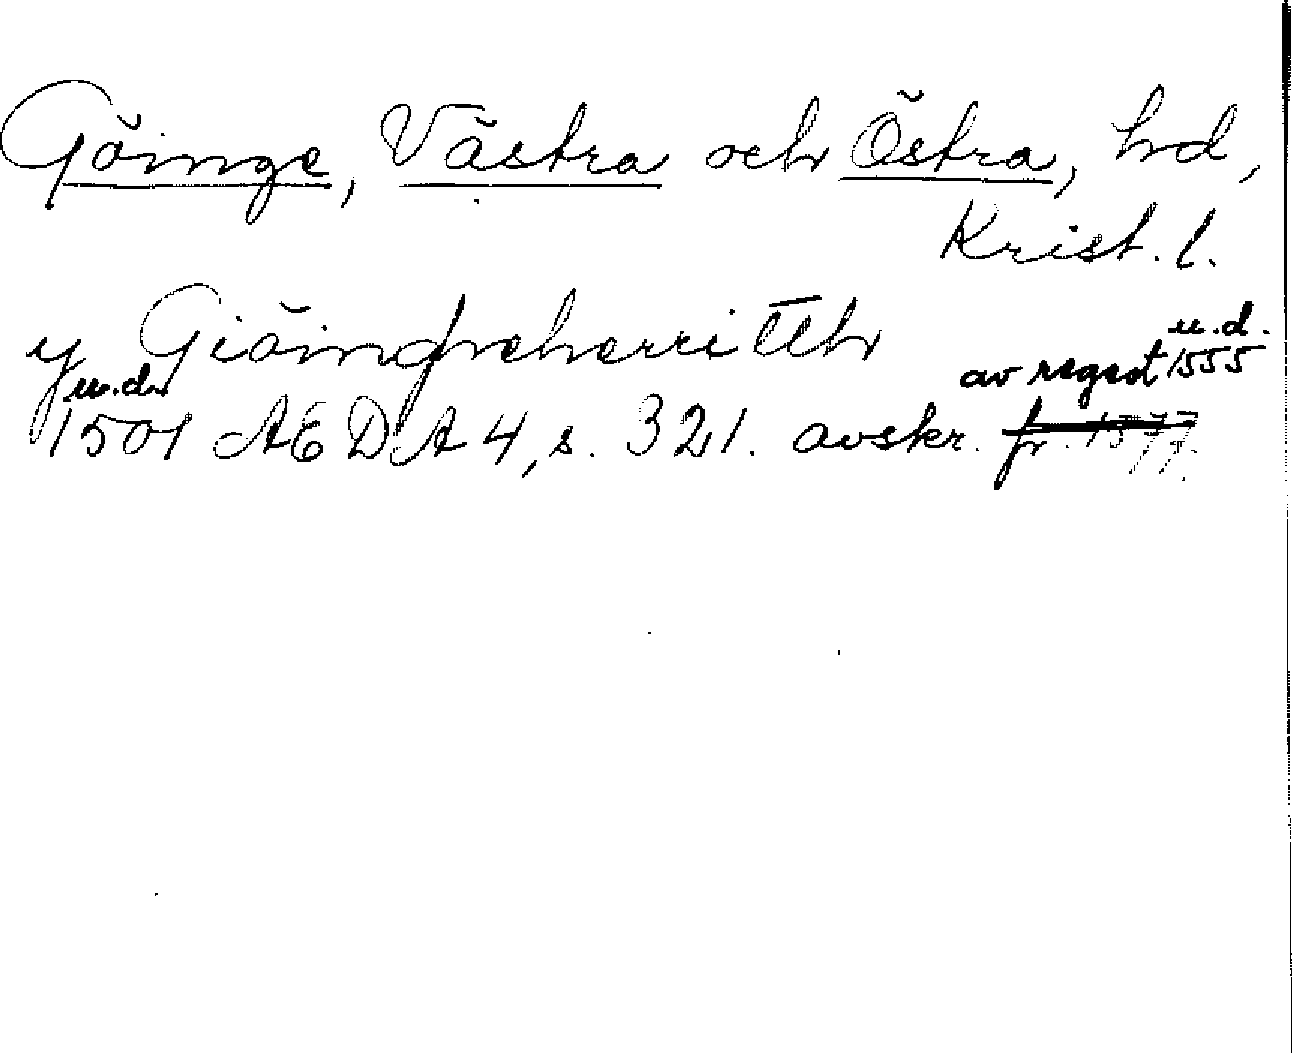 Göinge, Västra och Östra, hd,
Krist. l.
y Giöingeherritth
u.d. av regest u.d. 1555
1501 AEDA 4, s. 321. avskr. fr. 1577.